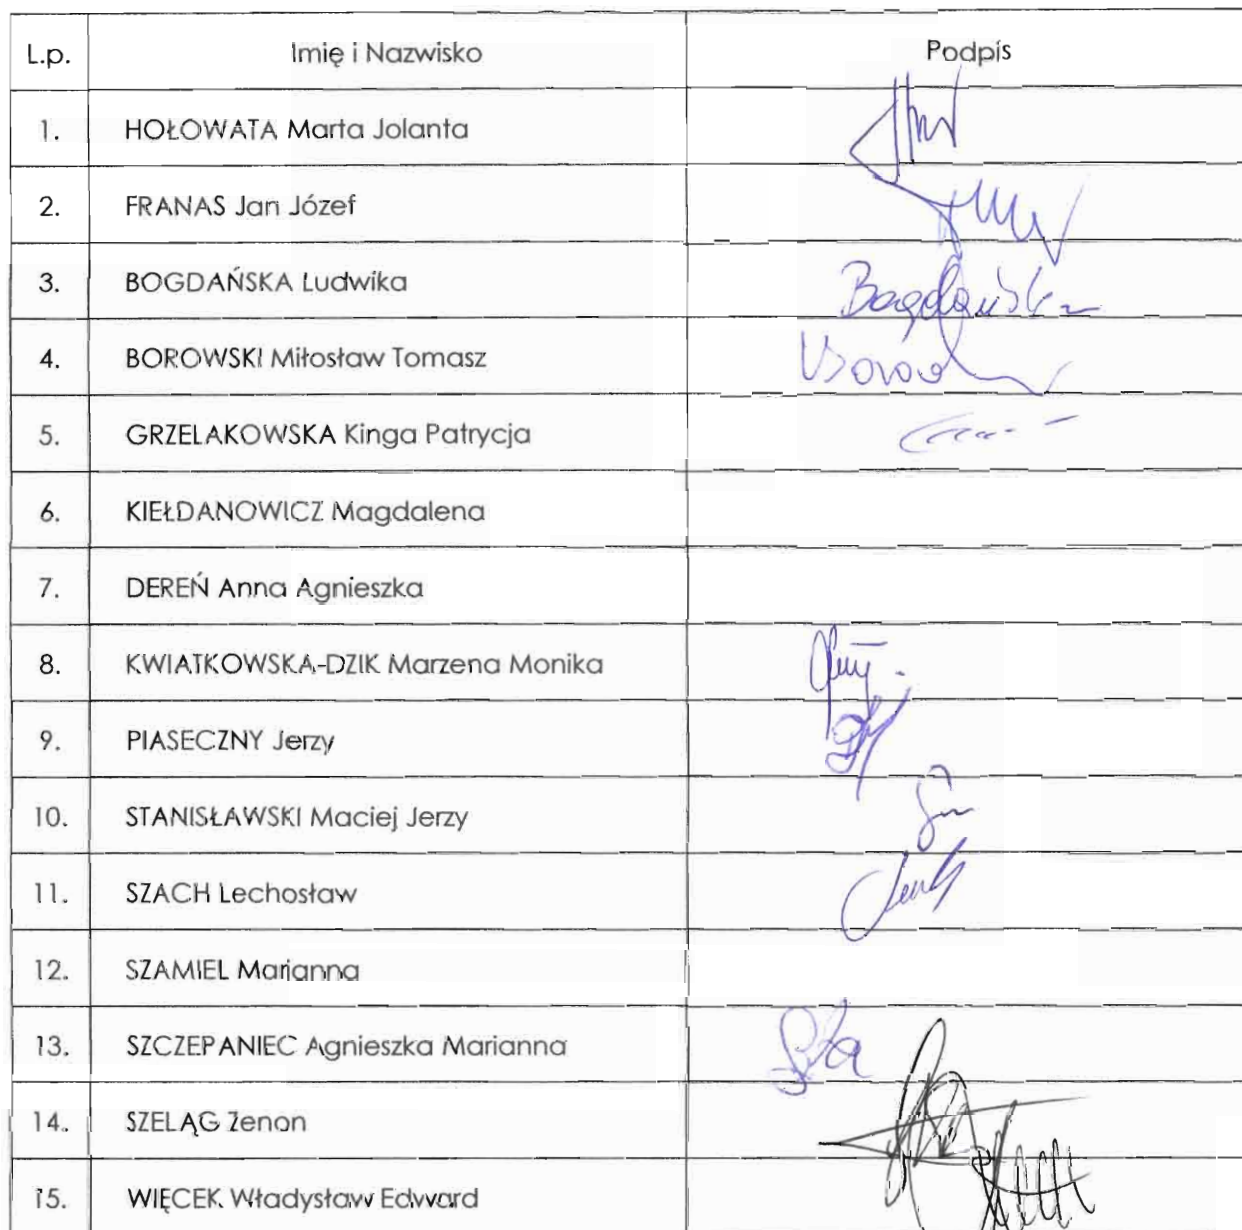 L.p. Imię i Nazwisko Podpis
1. HOŁOWATA Marta Jolanta
2. FRANAS Jan Józef
3. BOGDAŃSKA Ludwika Bogdańska
4. BOROWSKI Miłosław Tomasz
5. GRZELAKOWSKA Kinga Patrycja
6. KIEŁDANOWICZ Magdalena
7. DEREŃ Anna Agnieszka
8. KWIATKOWSKA-DZIK Marzena Monika
9. PIASECZNY Jerzy
10. STANISŁAWSKI Maciej Jerzy
11. SZACH Lechosław
12. SZAMIEL Marianna
13. SZCZEPANIEC Agnieszka Marianna
14. SZELĄG Zenon
15. WIĘCEK Władysław Edward